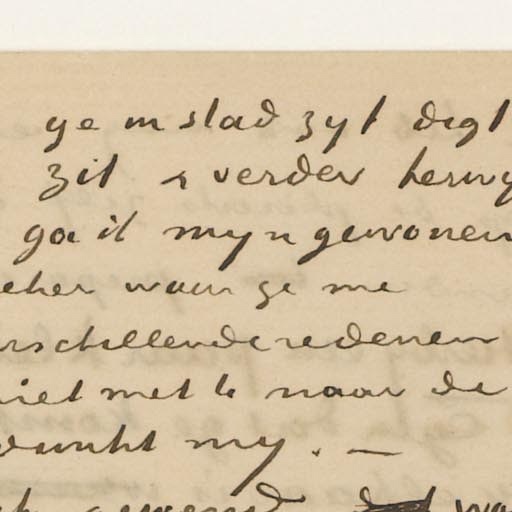 ge in stad zyt digt
zit & verder herwy
ga ik myn gewonen
eker waar ge me
rschillende redenen
niet met te naar de
wacht my. —
gewend wa